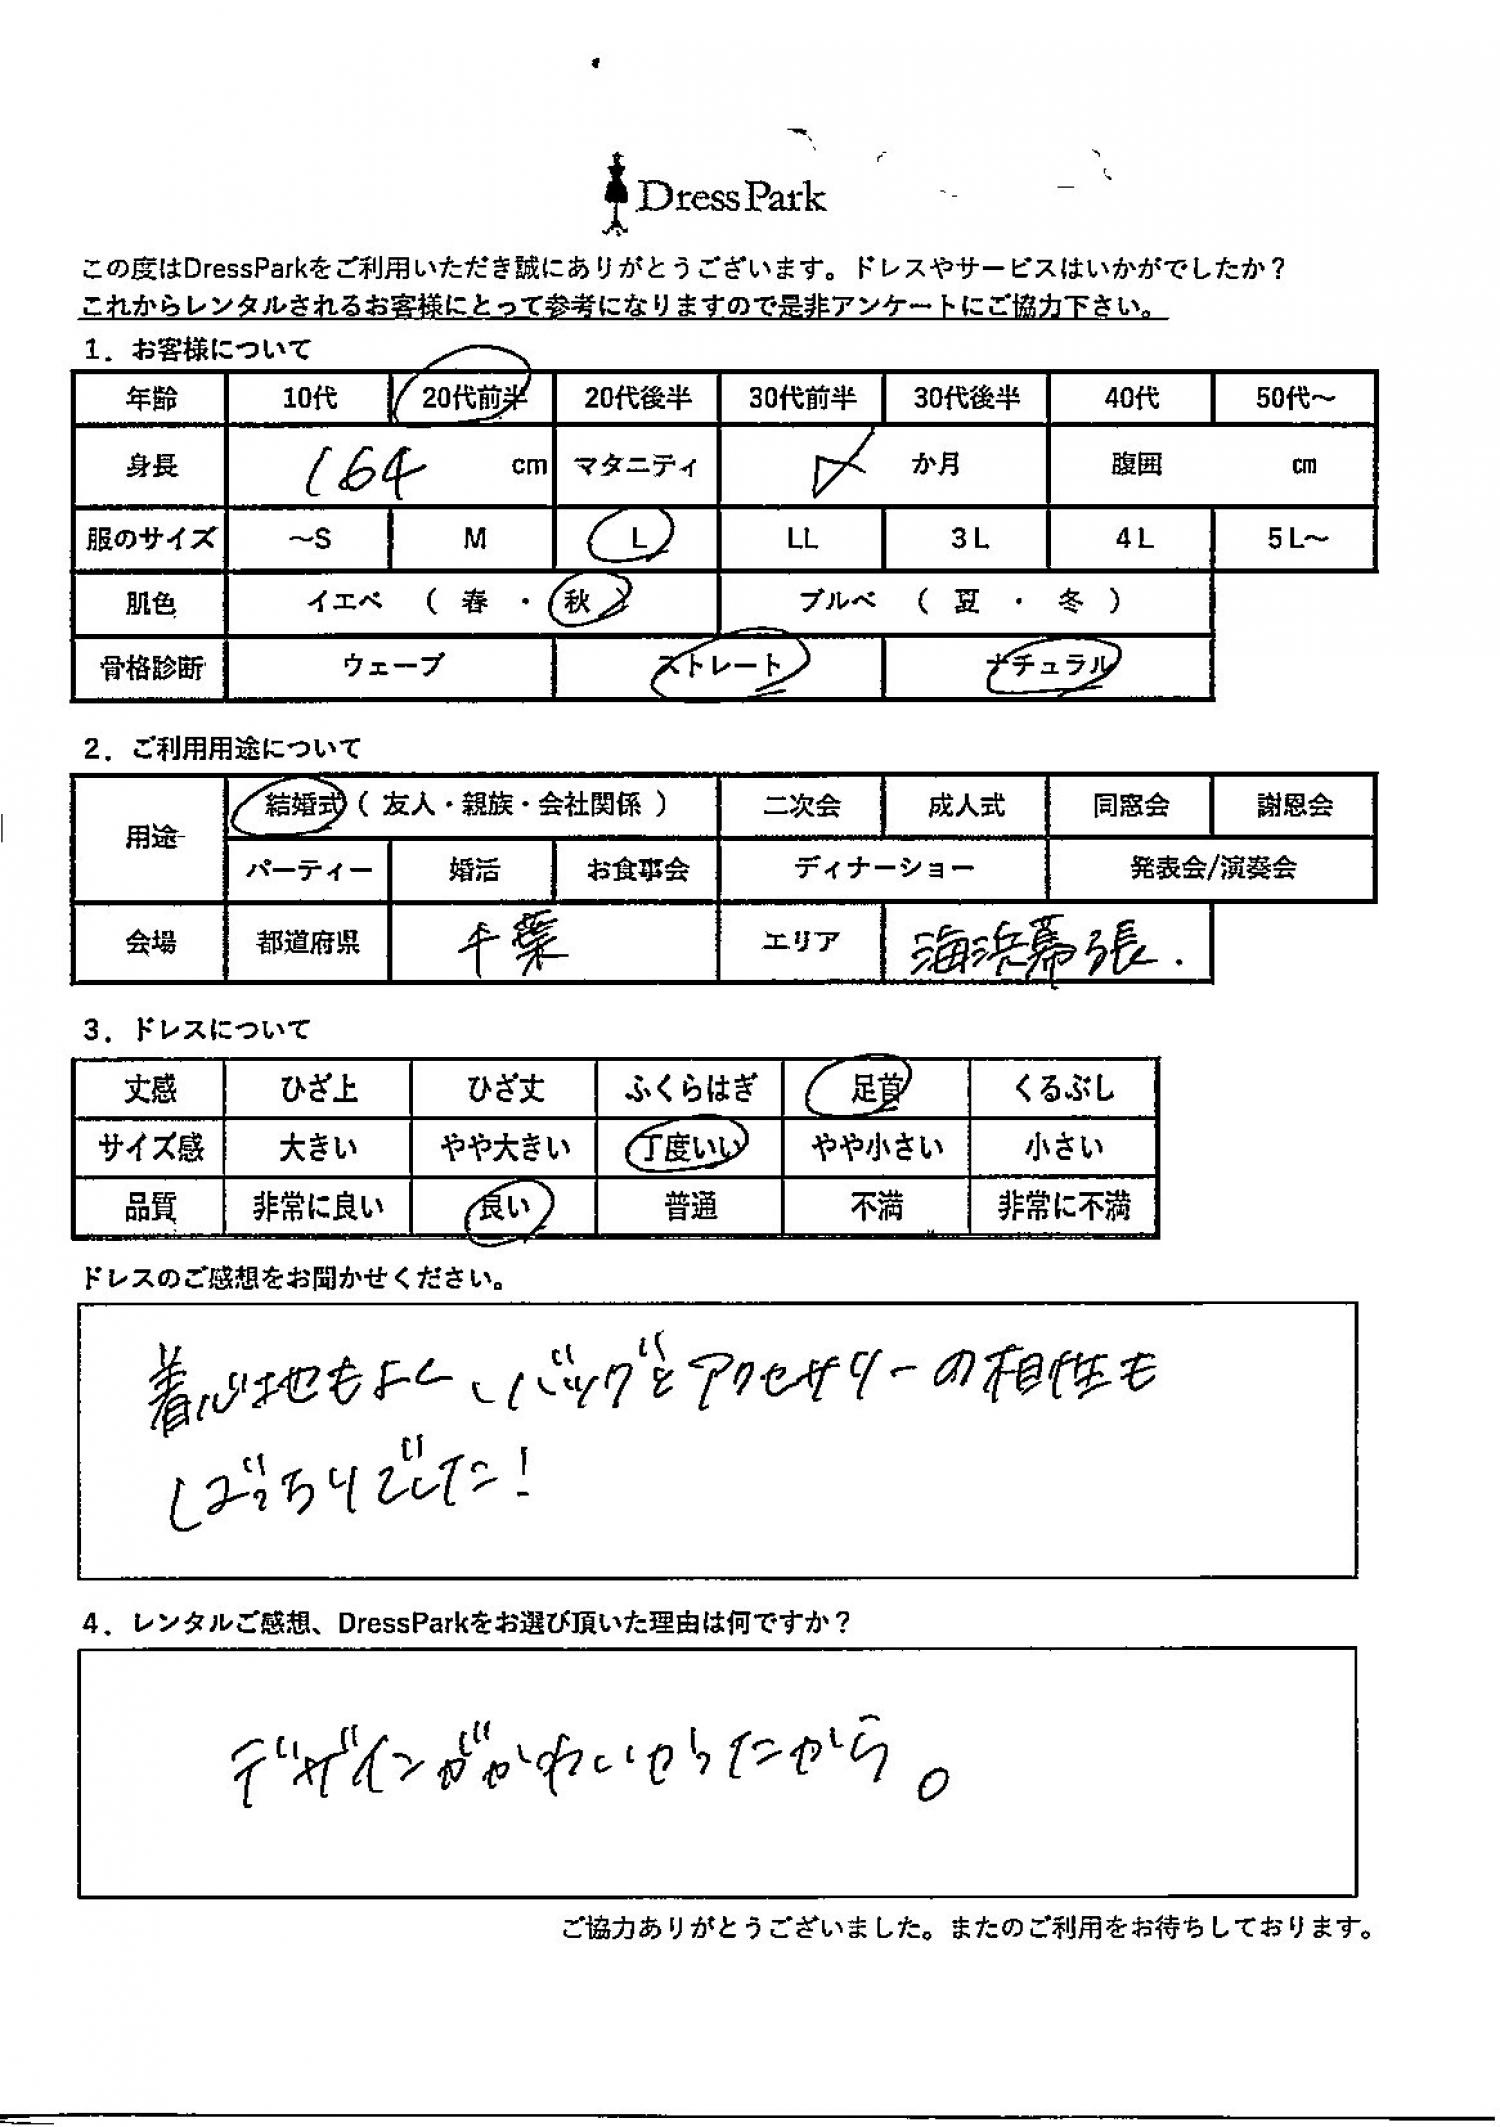 DressPark
この度はDressParkをご利用いただき誠にありがとうございます。ドレスやサービスはいかがでしたか？
これからレンタルされるお客様にとって参考になりますので是非アンケートにご協力下さい。
1．お客様について
年齢 10代 20代前半 20代後半 30代前半 30代後半 40代 50代～
身長 164 cm マタニティ か月 腹囲 cm
服のサイズ ～S M L LL 3L 4L 5L～
肌色 イエベ （ 春 ・ 秋 ） ブルベ （ 夏 ・ 冬 ）
骨格診断 ウェーブ ストレート ナチュラル
2．ご利用用途について
用途 結婚式（ 友人・親族・会社関係 ） 二次会 成人式 同窓会 謝恩会
パーティー 婚活 お食事会 ディナーショー 発表会/演奏会
会場 都道府県 千葉 エリア 海浜幕張.
3．ドレスについて
丈感 ひざ上 ひざ丈 ふくらはぎ 足首 くるぶし
サイズ感 大きい やや大きい 丁度いい やや小さい 小さい
品質 非常に良い 良い 普通 不満 非常に不満
ドレスのご感想をお聞かせください。
着心地もよく、バッグとアクセサリーの相性も
ばっちりでした！
4．レンタルご感想、DressParkをお選び頂いた理由は何ですか？
デザインがかわいかったから。
ご協力ありがとうございました。またのご利用をお待ちしております。